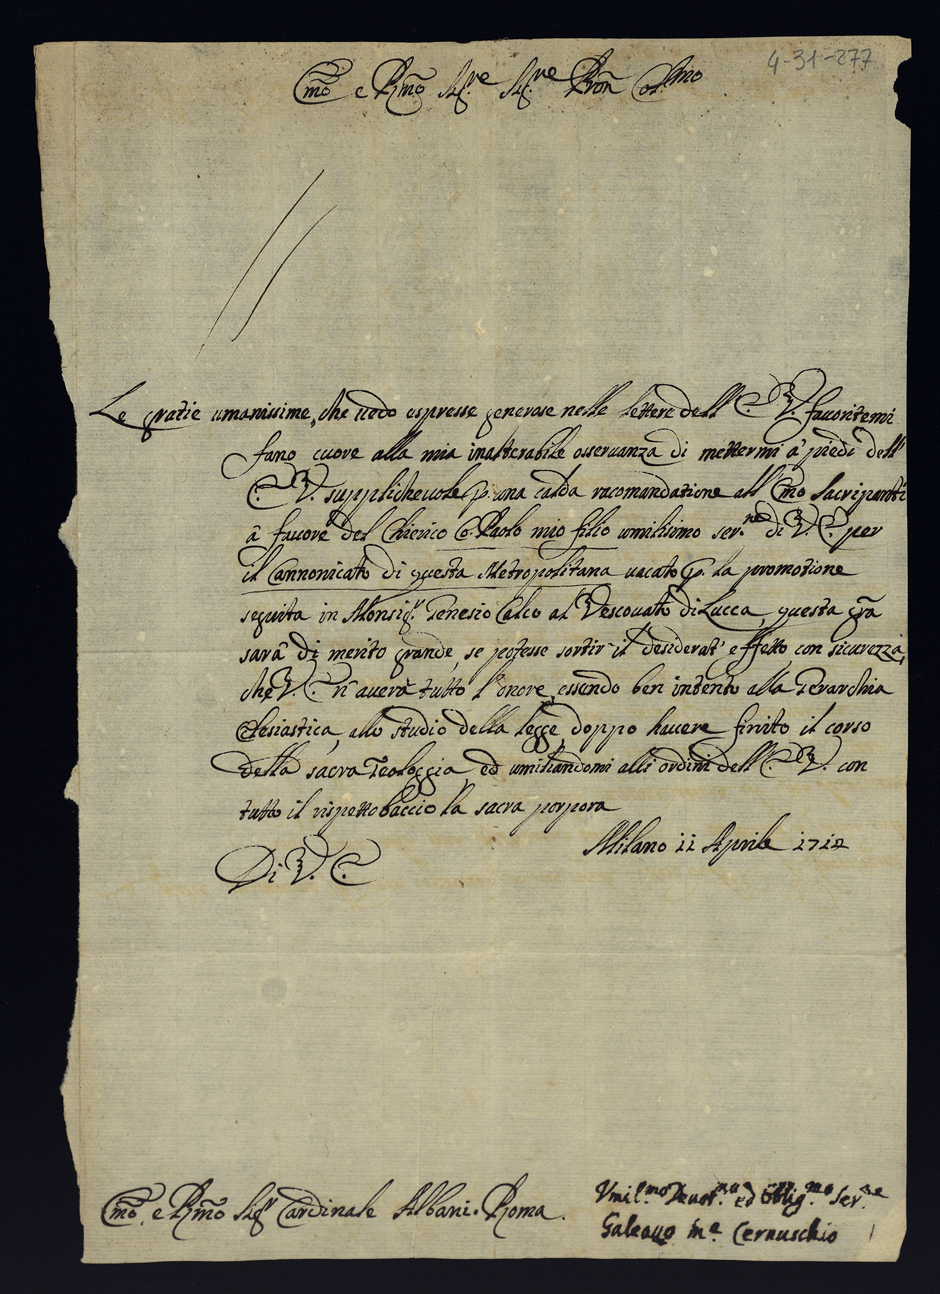 4-31-277
Em̃o e Rm̃o Sig.re Sig.re Pron̄ Col.mo
Le gratie umanissime, che vedo espresse generose nelle lettere dell' E. V. favoritemi
fano cuore alla mia inalterabile osservanza di mettermi a' piedi dell'
E. V. supplichevole p. una calda racomandatione all' Em̃o Sacripanti
â favore del Chierico Co. Paolo mio filio umilissimo ser.re di V. E. per
il Cannonicato di questa Metropolitana vacato p. la promotione
seguita in Monsig.r Genesio Calco al Vescovato di Lucca, questa gr̃a
sarâ di merito grande, se potesse sortir il desiderat' effetto con sicurezza,
che V. E. n' averà tutto l'onore, essendo ben intento alla Gerarchia
Clesiastica, allo studio della legge, doppo havere finito il corso
della sacra Teologgia, ed umiliandomi alli ordini dell' E. V. con
tutto il rispetto baccio la sacra porpora
Milano 11 Aprile 1712
Di V. E.
Em̃o e Rm̃o Sig.r Cardinale Albani. Roma.
Vmil.mo Deuot.mo ed Oblig.mo Ser.re
Galeazzo M.a Cernuschio